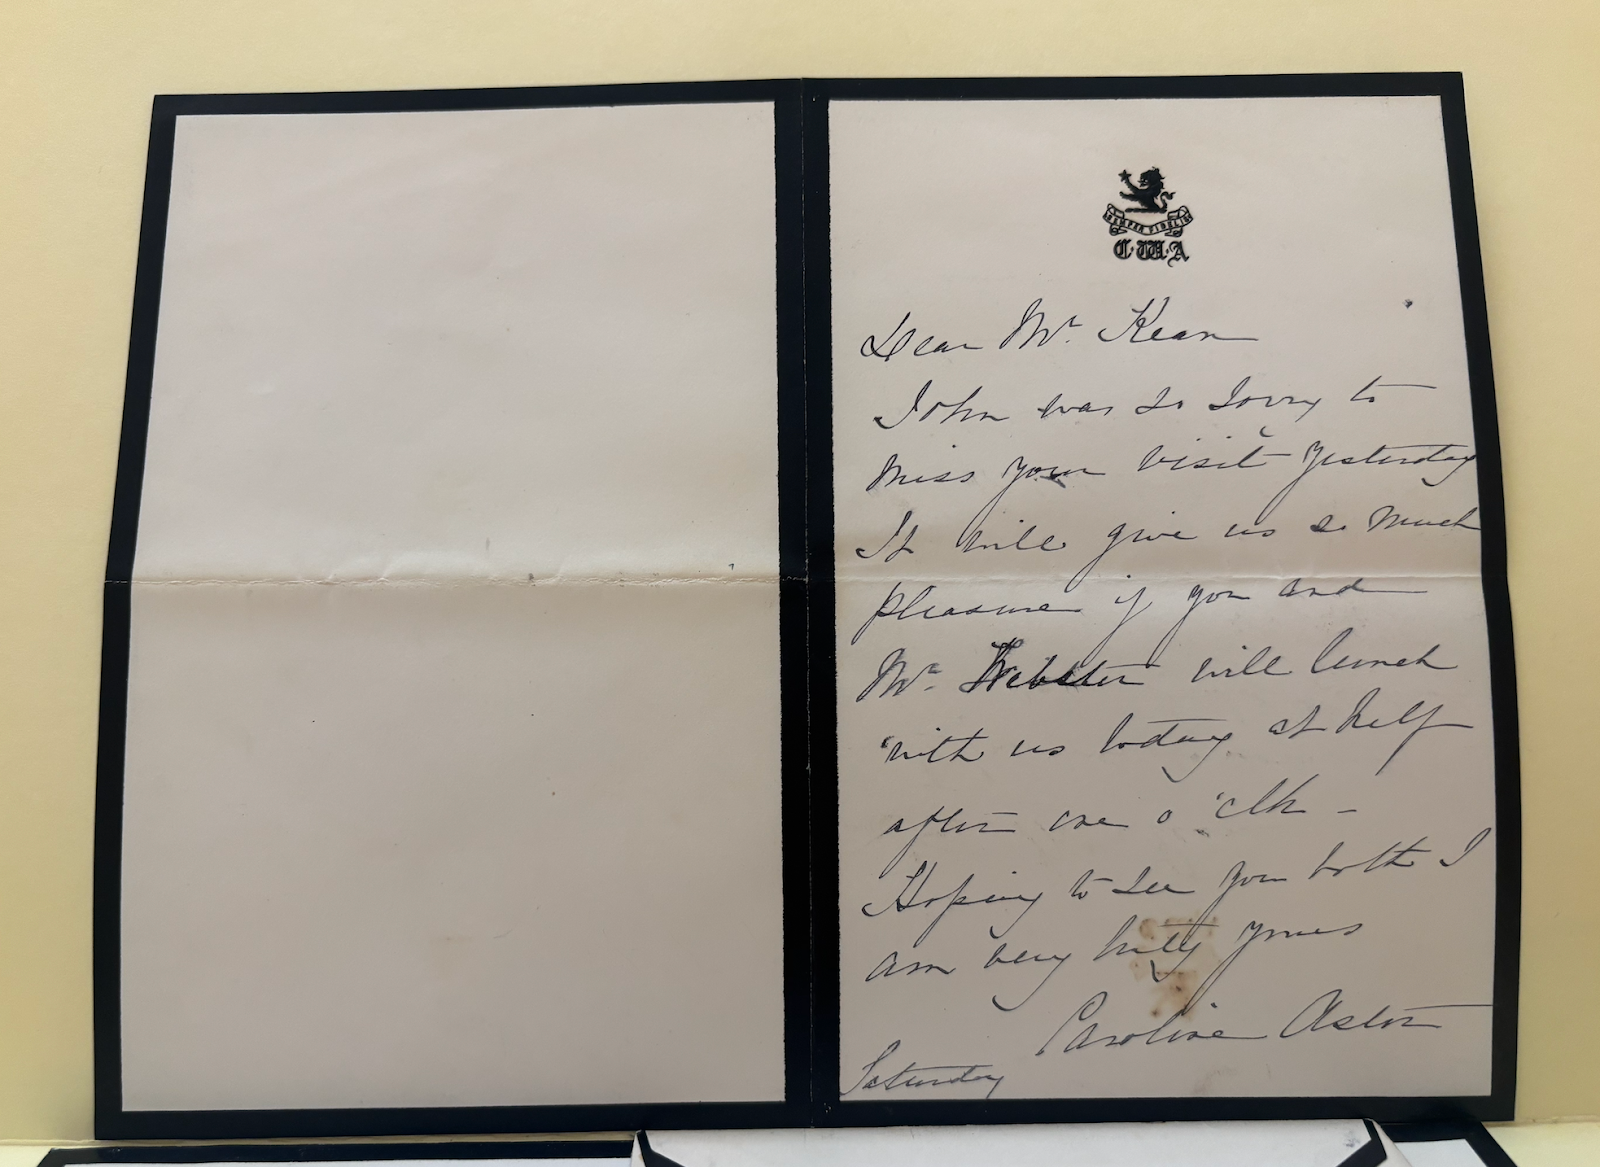 SEMPER FIDELIS
C·W·A
Dear Mr. Kean
John was so sorry to
miss your visit yesterday
It will give us so much
pleasure if you and
Mr. Webster will lunch
with us today at half
after one o'clk –
Hoping to see you both I
am very truly yours
Caroline Astor
Saturday